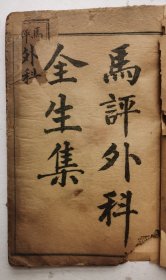 馬評外科
全生集
馬評
外科